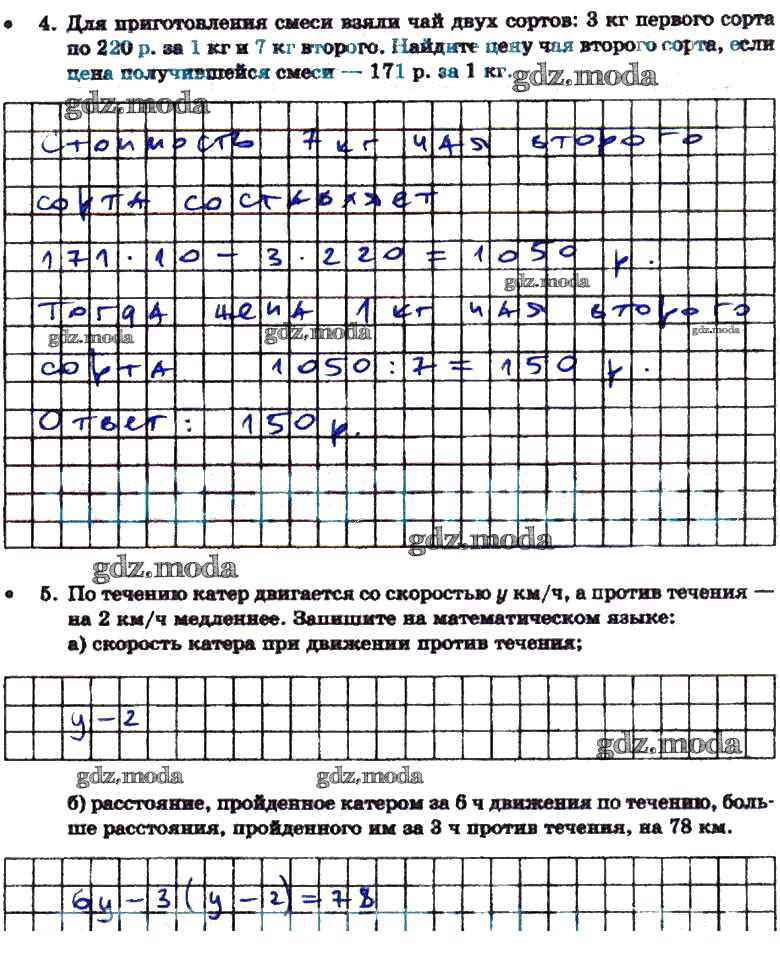 4. Для приготовления смеси взяли чай двух сортов: 3 кг первого сорта
по 220 р. за 1 кг и 7 кг второго. Найдите цену чая второго сорта, если
цена получившейся смеси — 171 р. за 1 кг.
gdz.moda
gdz.moda
Стоимость 7 кг чая второго
сорта составляет
171 · 10 - 3 · 220 = 1050 р.
gdz.moda
Тогда цена 1 кг чая второго
gdz.moda gdz.moda gdz.moda
сорта 1050 : 7 = 150 р.
Ответ: 150 р.
gdz.moda
gdz.moda
5. По течению катер двигается со скоростью y км/ч, а против течения —
на 2 км/ч медленнее. Запишите на математическом языке:
а) скорость катера при движении против течения;
y - 2
gdz.moda
gdz.moda gdz.moda
б) расстояние, пройденное катером за 6 ч движения по течению, боль-
ше расстояния, пройденного им за 3 ч против течения, на 78 км.
6y - 3(y - 2) = 78